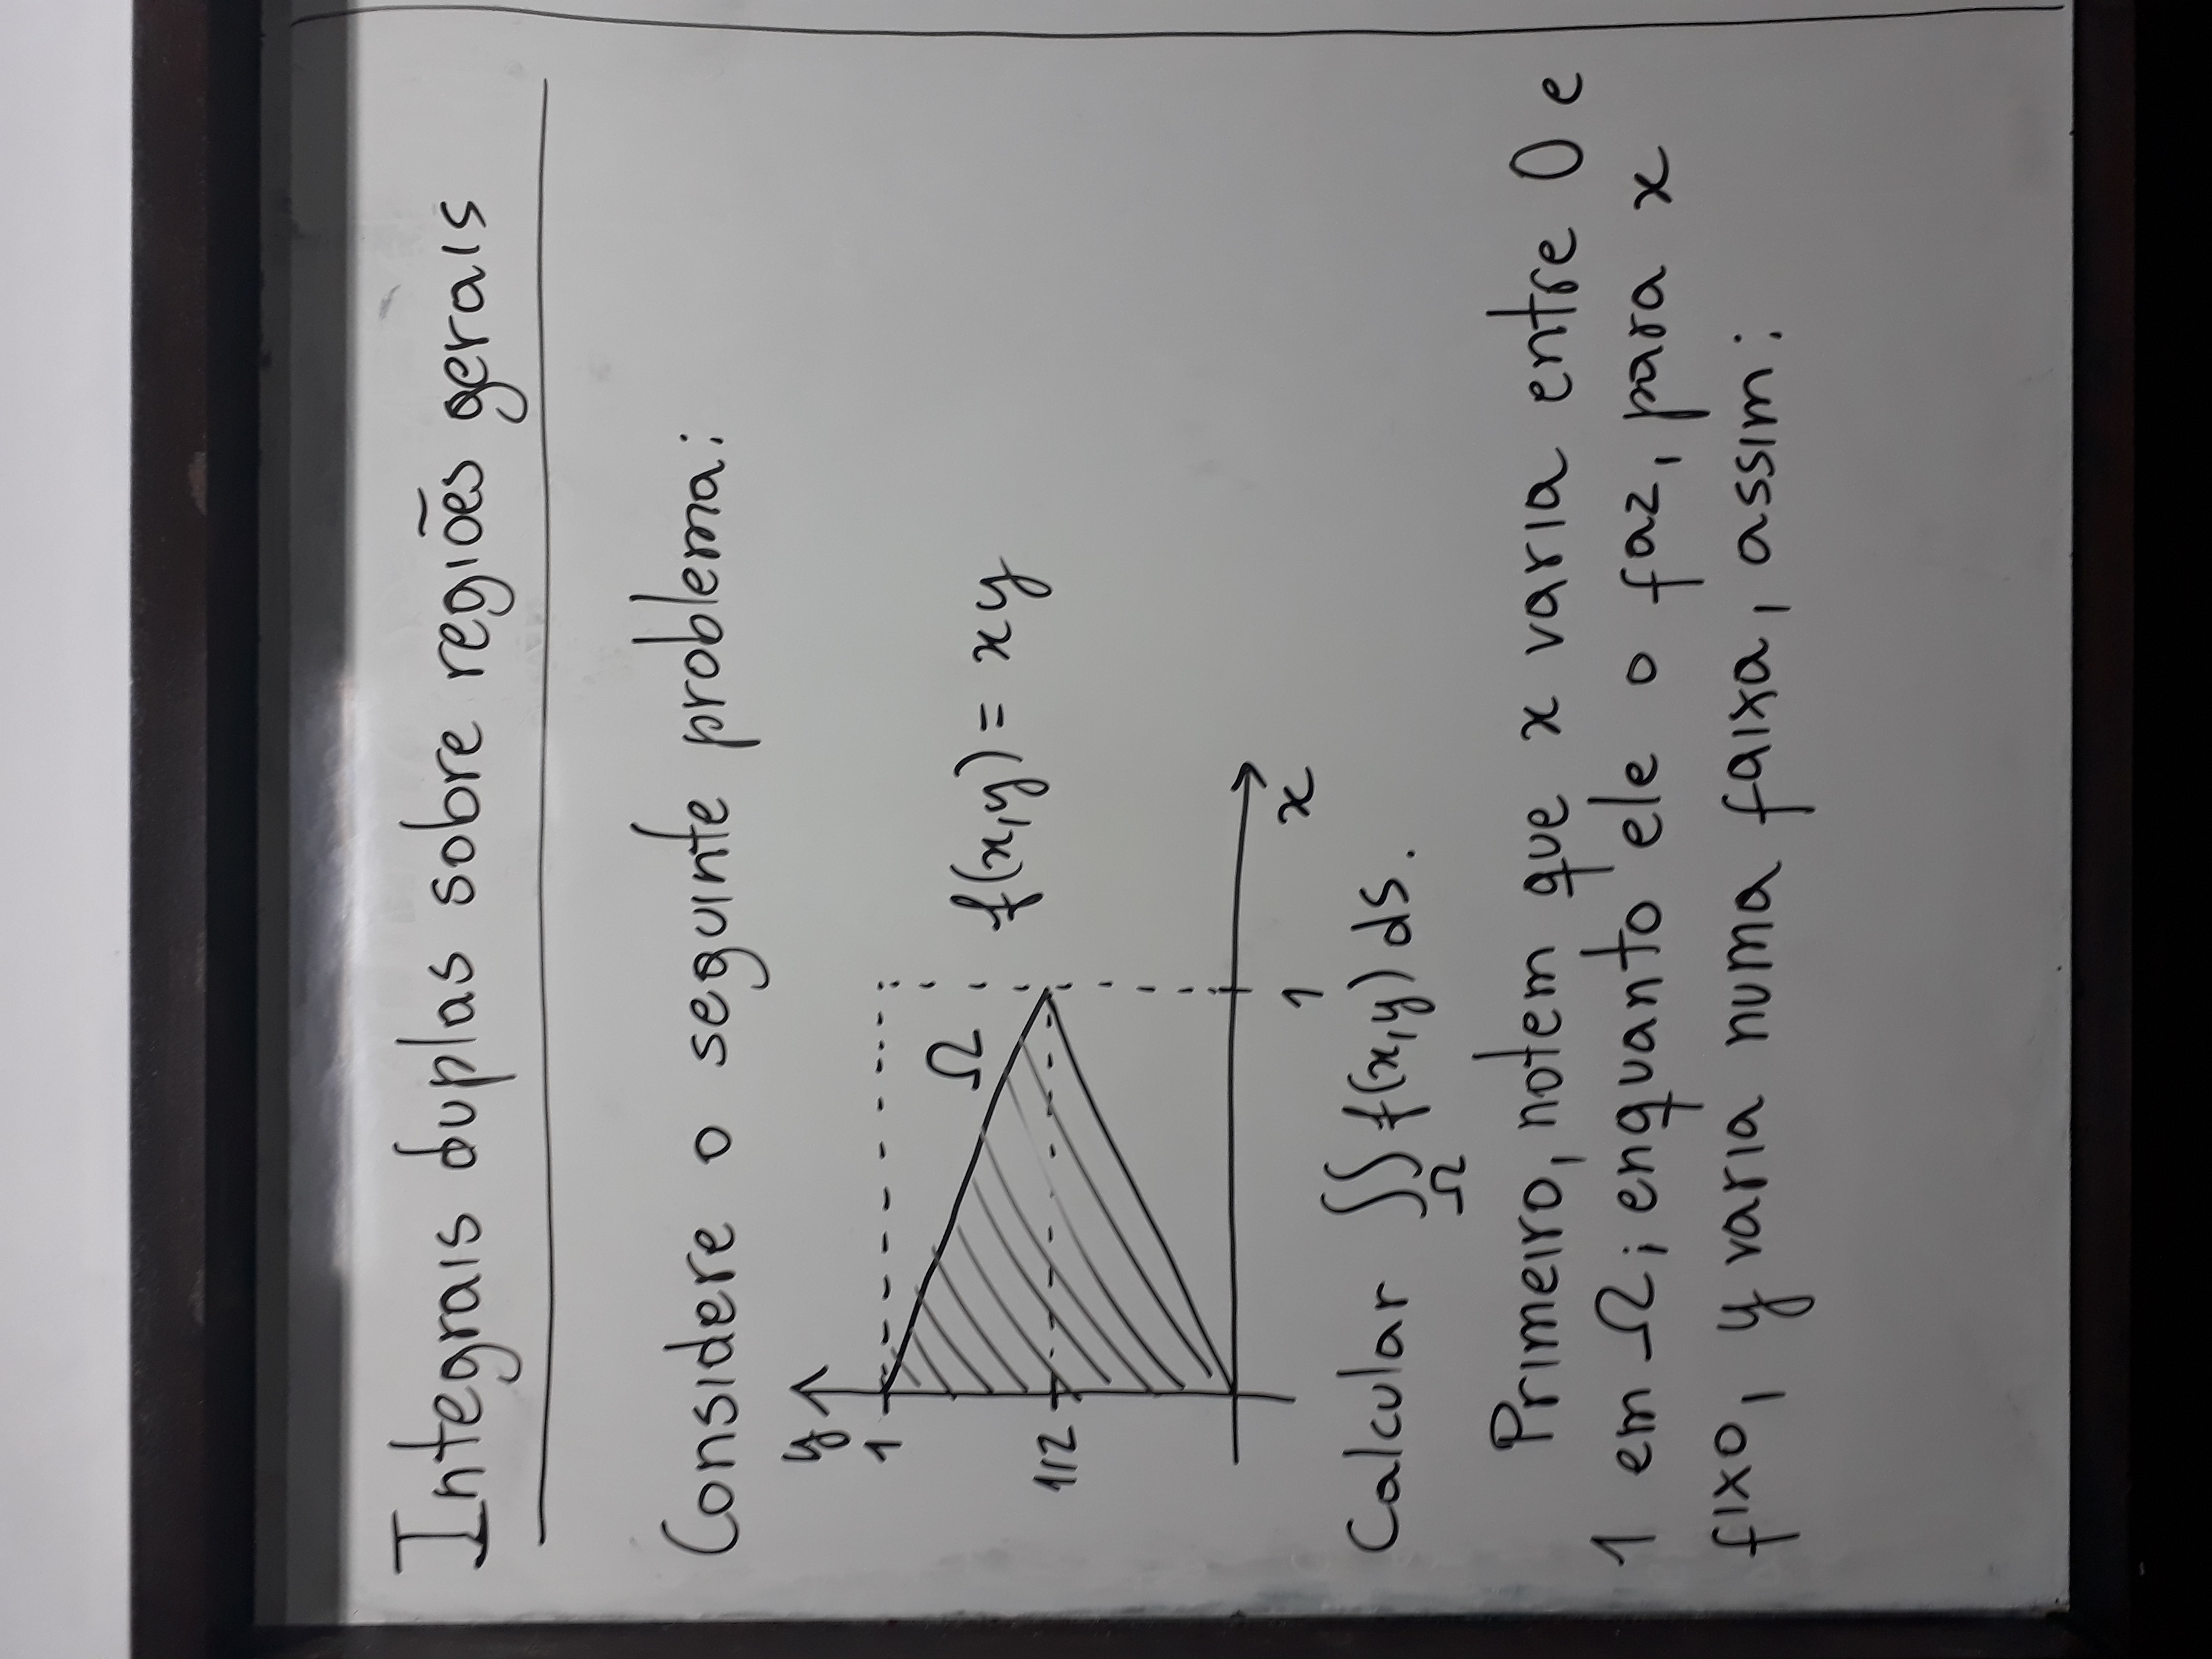 Integrais duplas sobre regiões gerais
Considere o seguinte problema:
y
1
Ω
f(x,y) = xy
1/2
1
x
Calcular ∬_Ω f(x,y) ds.
Primeiro, notem que x varia entre 0 e
1 em Ω; enquanto ele o faz, para x
fixo, y varia numa faixa, assim: